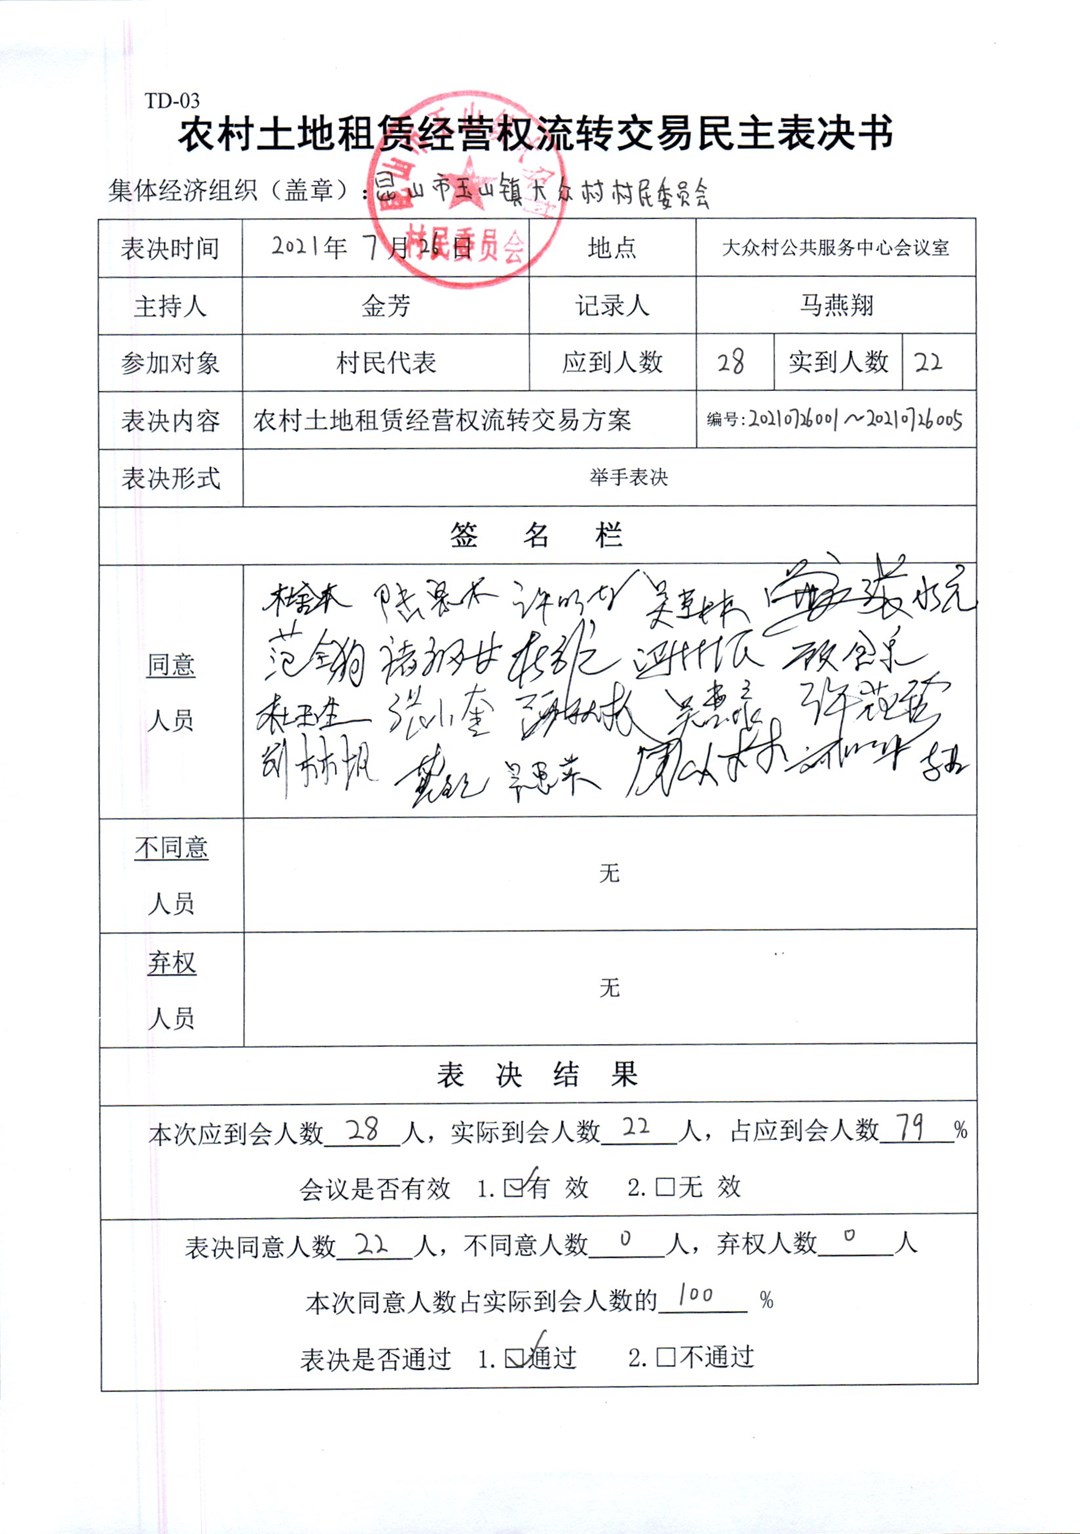 TD-03
农村土地租赁经营权流转交易民主表决书
集体经济组织（盖章）：昆山市玉山镇大众村村民委员会
村民委员会
表决时间 2021年 7月26日 地点 大众村公共服务中心会议室
主持人 金芳 记录人 马燕翔
参加对象 村民代表 应到人数 28 实到人数 22
表决内容 农村土地租赁经营权流转交易方案 编号:20210726001～20210726005
表决形式 举手表决
签 名 栏
张小奎
同意
人员
不同意
人员
无
弃权
人员
无
表 决 结 果
本次应到会人数 28 人，实际到会人数 22 人，占应到会人数 79 %
会议是否有效 1.☑有 效 2.□无 效
表决同意人数 22 人，不同意人数 0 人，弃权人数 0 人
本次同意人数占实际到会人数的 100 %
表决是否通过 1.☑通过 2.□不通过